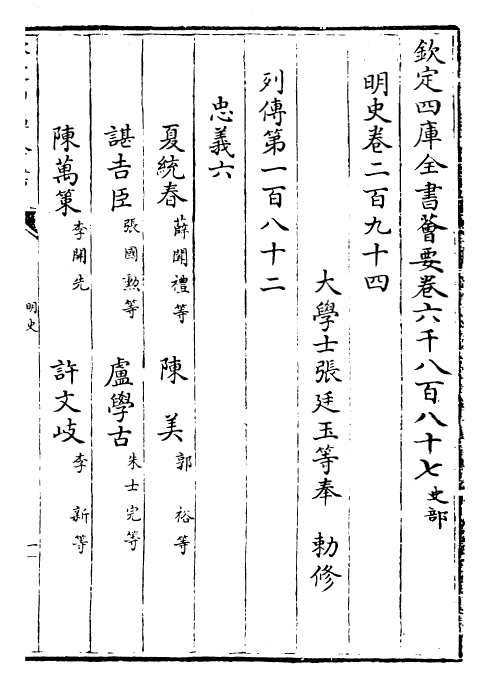 欽定四庫全書薈要卷六千八百八十七 史部
明史卷二百九十四
大學士張廷玉等奉 勅修
列傳第一百八十二
忠義六
夏統春 薛聞禮等 陳美 郭裕等
諶吉臣 張國勲等 盧學古 朱士完等
陳萬策 李開先 許文岐 李新等
明史
一